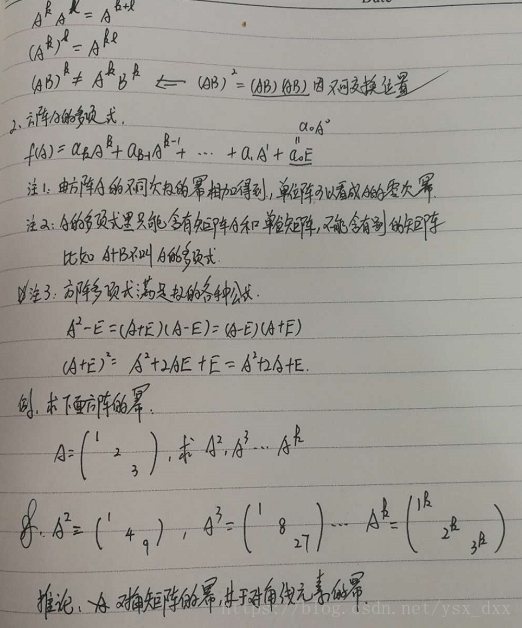 Date
A^k A^l = A^{k+l}
(A^k)^l = A^{kl}
(AB)^k ≠ A^k B^k ⇐ (AB)^2 = (AB)(AB) 因不可交换位置
2. 方阵A的多项式.
a₀A⁰
f(A) = a_k A^k + a_{k-1} A^{k-1} + … + a₁A¹ + a₀E
注1: 由方阵A的不同次数的幂相加得到, 单位阵可以看成A的零次幂.
注2: A的多项式里只能含有矩阵A和单位矩阵, 不能含有别的矩阵
比如 A+B不叫A的多项式.
注3: 方阵多项式满足数的各种公式.
A²-E=(A+E)(A-E)=(A-E)(A+E)
(A+E)²= A²+2AE+E = A²+2A+E.
例. 求下面方阵的幂.
A=(1 2 3), 求 A², A³ … A^k
解. A²=(1 4 9), A³=(1 8 27) … A^k=(1^k 2^k 3^k)
推论: 对角矩阵的幂, 等于对角线元素的幂.
https://blog.csdn.net/ysx_dxx